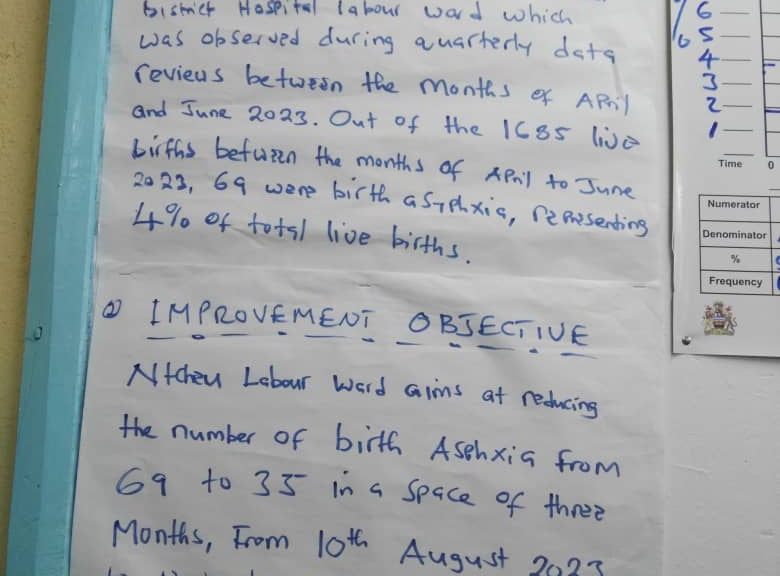 District Hospital labour ward which
was observed during quarterly data
reviews between the months of April
and June 2023. Out of the 1685 live
births between the months of April to June
2023, 69 were birth asyphxia, representing
4% of total live births.
② IMPROVEMENT OBJECTIVE
Ntcheu Labour Ward aims at reducing
the number of birth Asphxia from
69 to 35 in a space of three
Months, From 10th August 2023
6
5
4
3
2
1
Time 0
Numerator
Denominator
%
Frequency